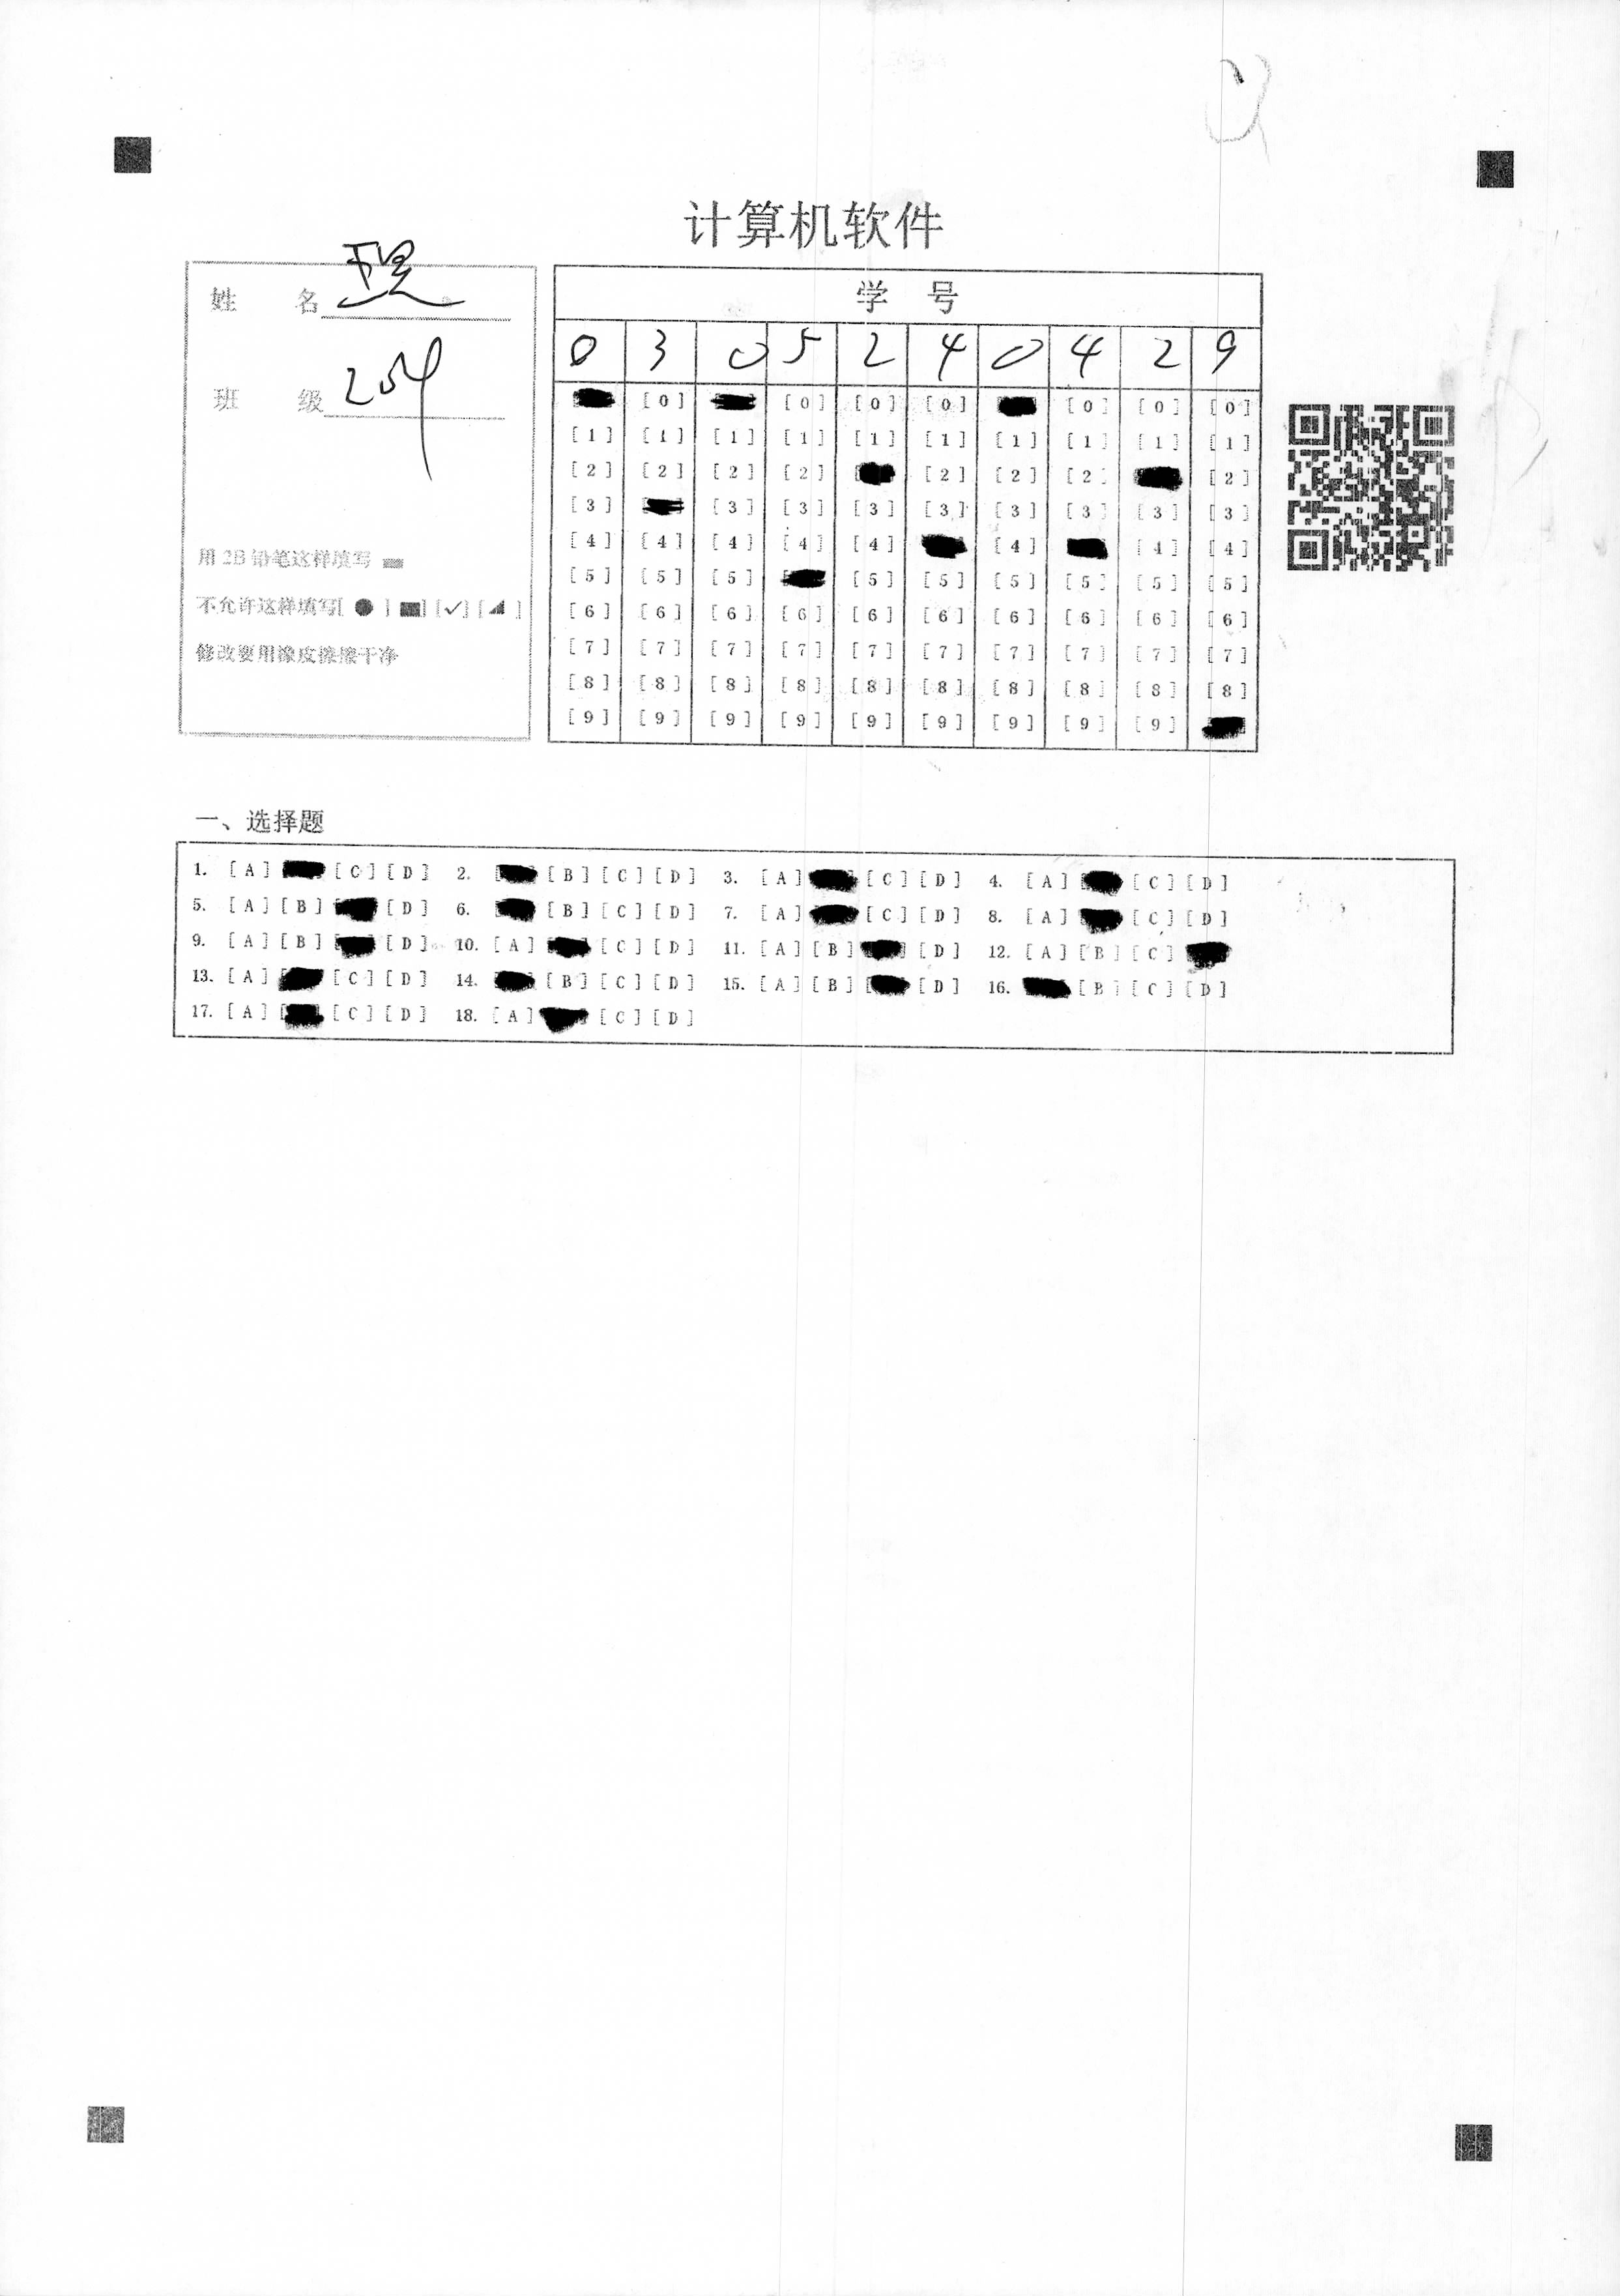 计算机软件
姓 名
班 级 254
用2B铅笔这样填写
不允许这样填写[ ] [ ] [✓] [ ]
修改要用橡皮擦擦干净
学 号
0 3 0 5 2 4 0 4 2 9
[0] [0] [0] [0] [0] [0] [0]
[1] [1] [1] [1] [1] [1] [1] [1] [1] [1]
[2] [2] [2] [2] [2] [2] [2] [2]
[3] [3] [3] [3] [3] [3] [3] [3] [3]
[4] [4] [4] [4] [4] [4] [4] [4]
[5] [5] [5] [5] [5] [5] [5] [5] [5]
[6] [6] [6] [6] [6] [6] [6] [6] [6] [6]
[7] [7] [7] [7] [7] [7] [7] [7] [7] [7]
[8] [8] [8] [8] [8] [8] [8] [8] [8] [8]
[9] [9] [9] [9] [9] [9] [9] [9] [9]
一、选择题
1. [A] [C] [D] 2. [B] [C] [D] 3. [A] [C] [D] 4. [A] [C] [D]
5. [A] [B] [D] 6. [B] [C] [D] 7. [A] [C] [D] 8. [A] [C] [D]
9. [A] [B] [D] 10. [A] [C] [D] 11. [A] [B] [D] 12. [A] [B] [C]
13. [A] [C] [D] 14. [B] [C] [D] 15. [A] [B] [D] 16. [B] [C] [D]
17. [A] [C] [D] 18. [A] [C] [D]